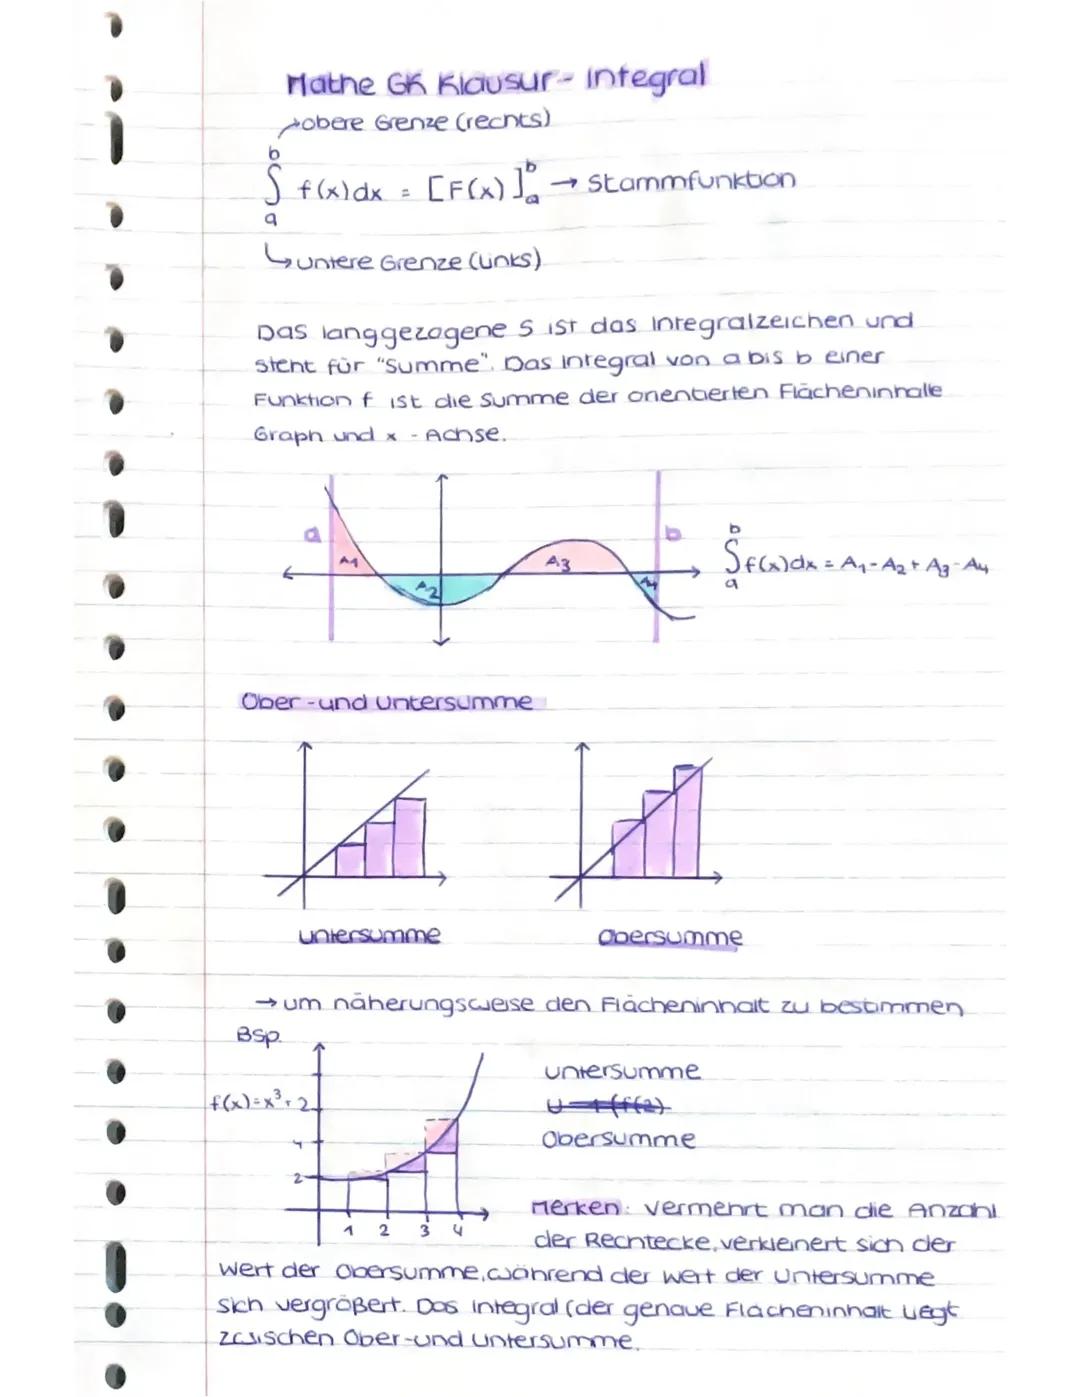 Mathe GK Klausur - Integral
→obere Grenze (rechts)
b
∫ f(x)dx = [F(x)]ᵇₐ → Stammfunktion
a
↳untere Grenze (links)
Das langgezogene S ist das Integralzeichen und
steht für "Summe". Das Integral von a bis b einer
Funktion f ist die Summe der orientierten Flächeninhalte
Graph und x - Achse.
a
b
A1
A2
A3
A4
b
∫f(x)dx = A₁-A₂+A₃-A₄
a
Ober-und Untersumme
untersumme
Obersumme
→ um näherungsweise den Flächeninhalt zu bestimmen
Bsp.
f(x)=x³+2
4
2
1 2 3 4
untersumme
Obersumme
Merken: vermehrt man die Anzahl
der Rechtecke, verkleinert sich der
Wert der Obersumme, während der Wert der Untersumme
sich vergrößert. Das Integral (der genaue Flächeninhalt liegt
zwischen Ober-und Untersumme.